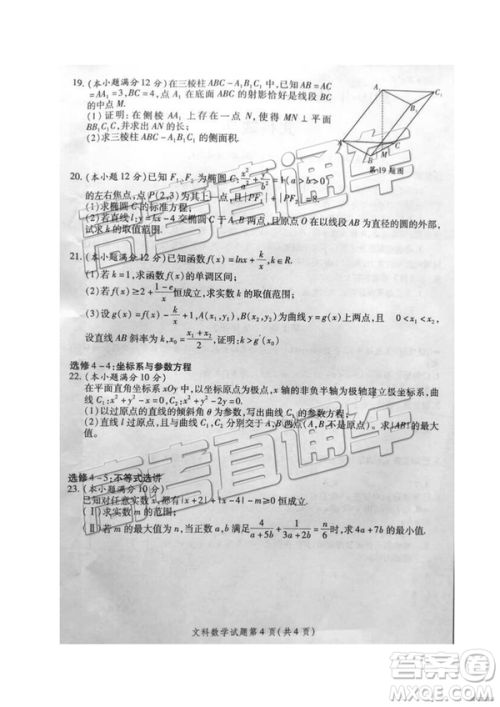 19. (本小题满分12分)在三棱柱ABC-A₁B₁C₁中,已知AB=AC
=AA₁=3,BC=4,点A₁在底面ABC的射影恰好是线段BC
的中点M.
(1)证明:在侧棱AA₁上存在一点N,使得MN⊥平面
BB₁C₁C,并求出AN的长;
(2)求三棱柱ABC-A₁B₁C₁的侧面积.
第19题图
20. (本小题12分)已知F₁、F₂为椭圆C:x²/a²+y²/b²=1(a>b>0)
的左右焦点,点P(2,3)为其上一点,且|PF₁|+|PF₂|=8.
(1)求椭圆C的标准方程;
(2)若直线l:y=kx-4交椭圆C于A、B两点,且原点O在以线段AB为直径的圆的外部,
试求k的取值范围.
21. (本小题满分12分)已知函数f(x)=lnx+k/x,k∈R.
(1)若k=1,求函数f(x)的单调区间;
(2)若f(x)≥2+(1-e)/x恒成立,求实数k的取值范围;
(3)设g(x)=xf(x)-k,若A(x₁,y₁),B(x₂,y₂)为曲线y=g(x)上两点,且 0<x₁<x₂,
设直线AB斜率为k,x₀=(x₁+x₂)/2,证明:k>g′(x₀)
选修4-4:坐标系与参数方程
22. (本小题满分10分)
在平面直角坐标系xOy中,以坐标原点为极点,x轴的非负半轴为极轴建立极坐标系,
(1)以过原点的直线的倾斜角θ为参数,写出曲线C₁的参数方程;
(2)直线l过原点,且与曲线C₁,C₂分别交于A,B两点(A,B不是原点).求|AB|的最大值.
选修4-3:不等式选讲
23. (本小题满分10分)
已知对任意实数x,都有|x+2|+|x-4|-m≥0恒成立.
(Ⅰ)求实数m的范围;
(Ⅱ)若m的最大值为n,当正数a,b满足4/(a+5b)+1/(3a+2b)=n/6时,求4a+7b的最小值.
文科数学试题第4页(共4页)
高考直通车
答案圈